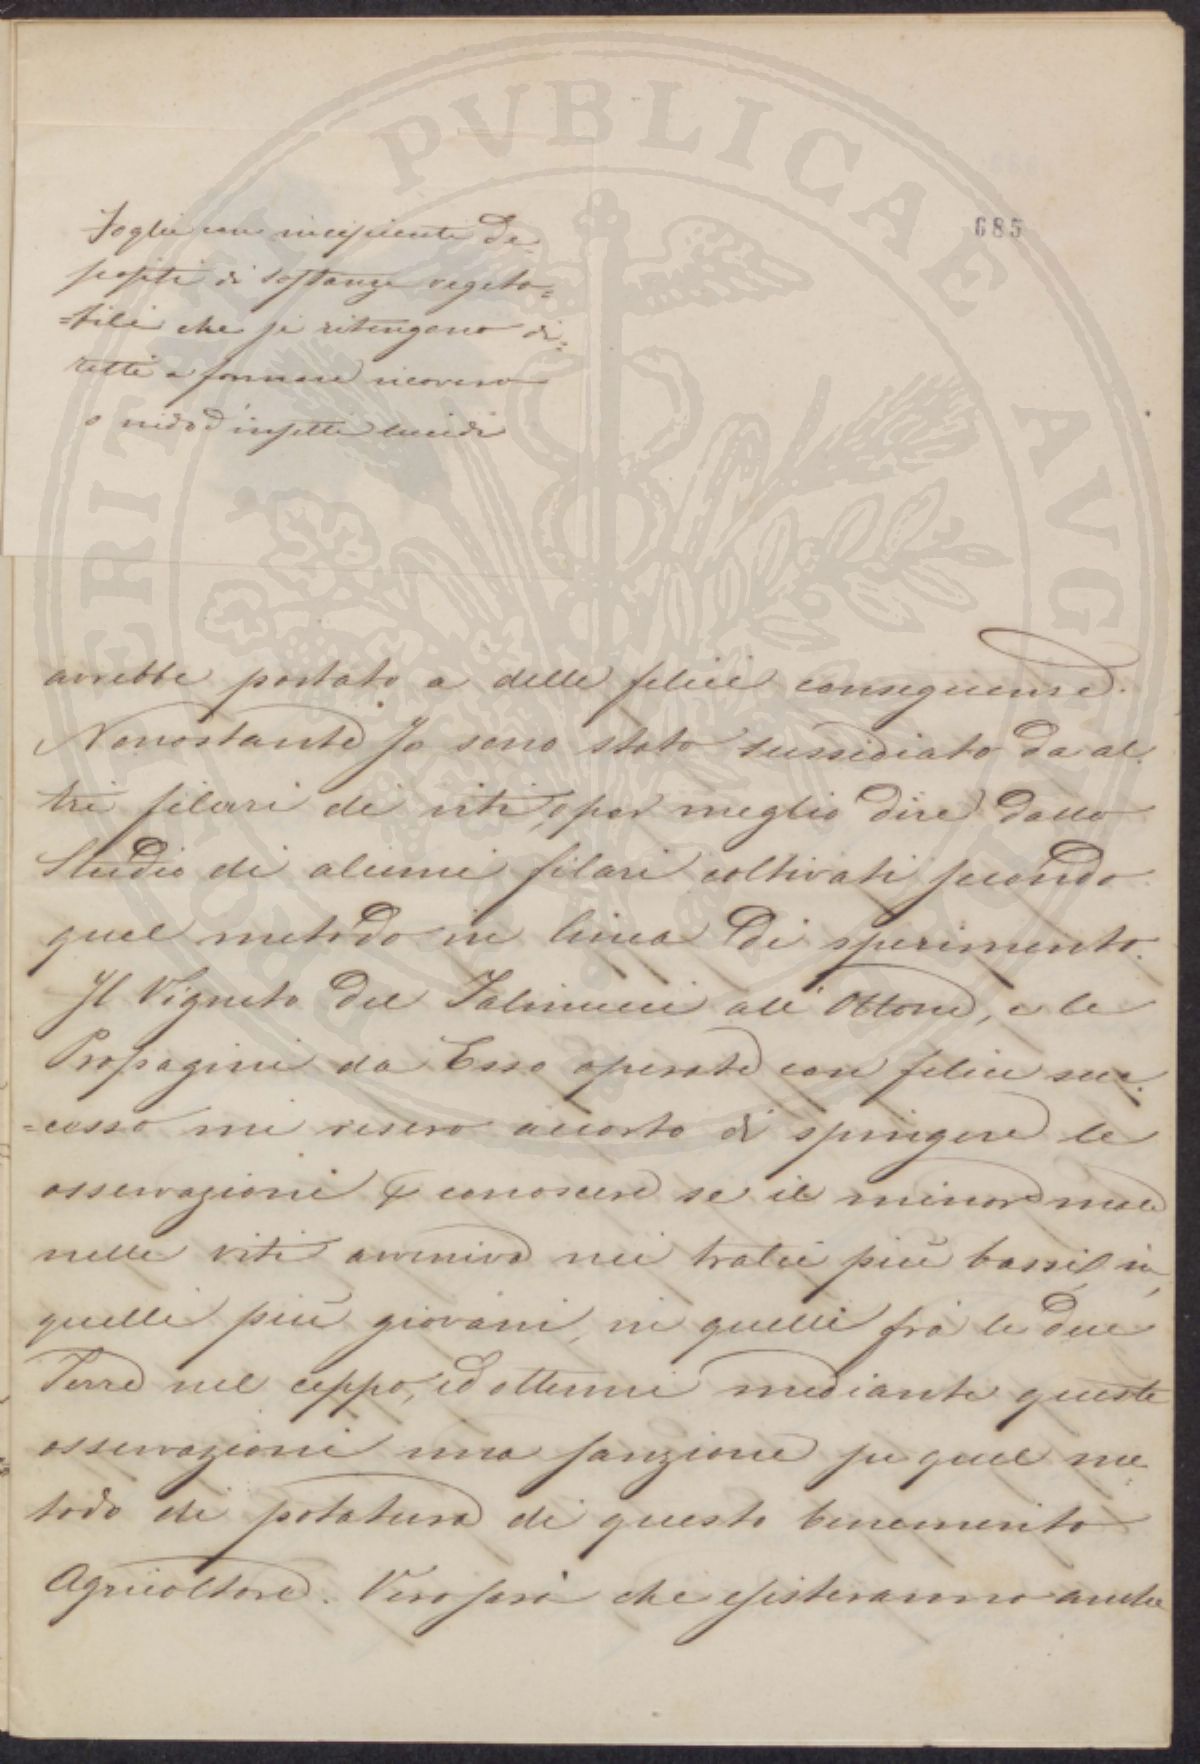 685
Foglie con incipienti de-
positi di sostanze vegeta=
=bili che si ritengono di=
retti a formare ricovero
o nido d'insetti lucidi
avrebbe portato a delle felici conseguenze.
Nonostante Io sono stato sussidiato da al
tri filari di viti, o per meglio dire dallo
Studio di alcuni filari coltivati secondo
quel metodo in linea di sperimento.
Il Vigneto del all'Ottone, e le
Propagini da Esso operate con felice suc.
=cesso mi resero accorto di spingere le
osservazioni conoscere se il minor male
nelle viti avveniva nei tralci più bassi, in
quelli più giovani, in quelli fra le due
Terre nel ceppo, ed ottenni mediante queste
osservazioni una sanzione su quel me=
todo di potatura di questo benemerito
Agricoltore. Vero sarà che esisteranno anche